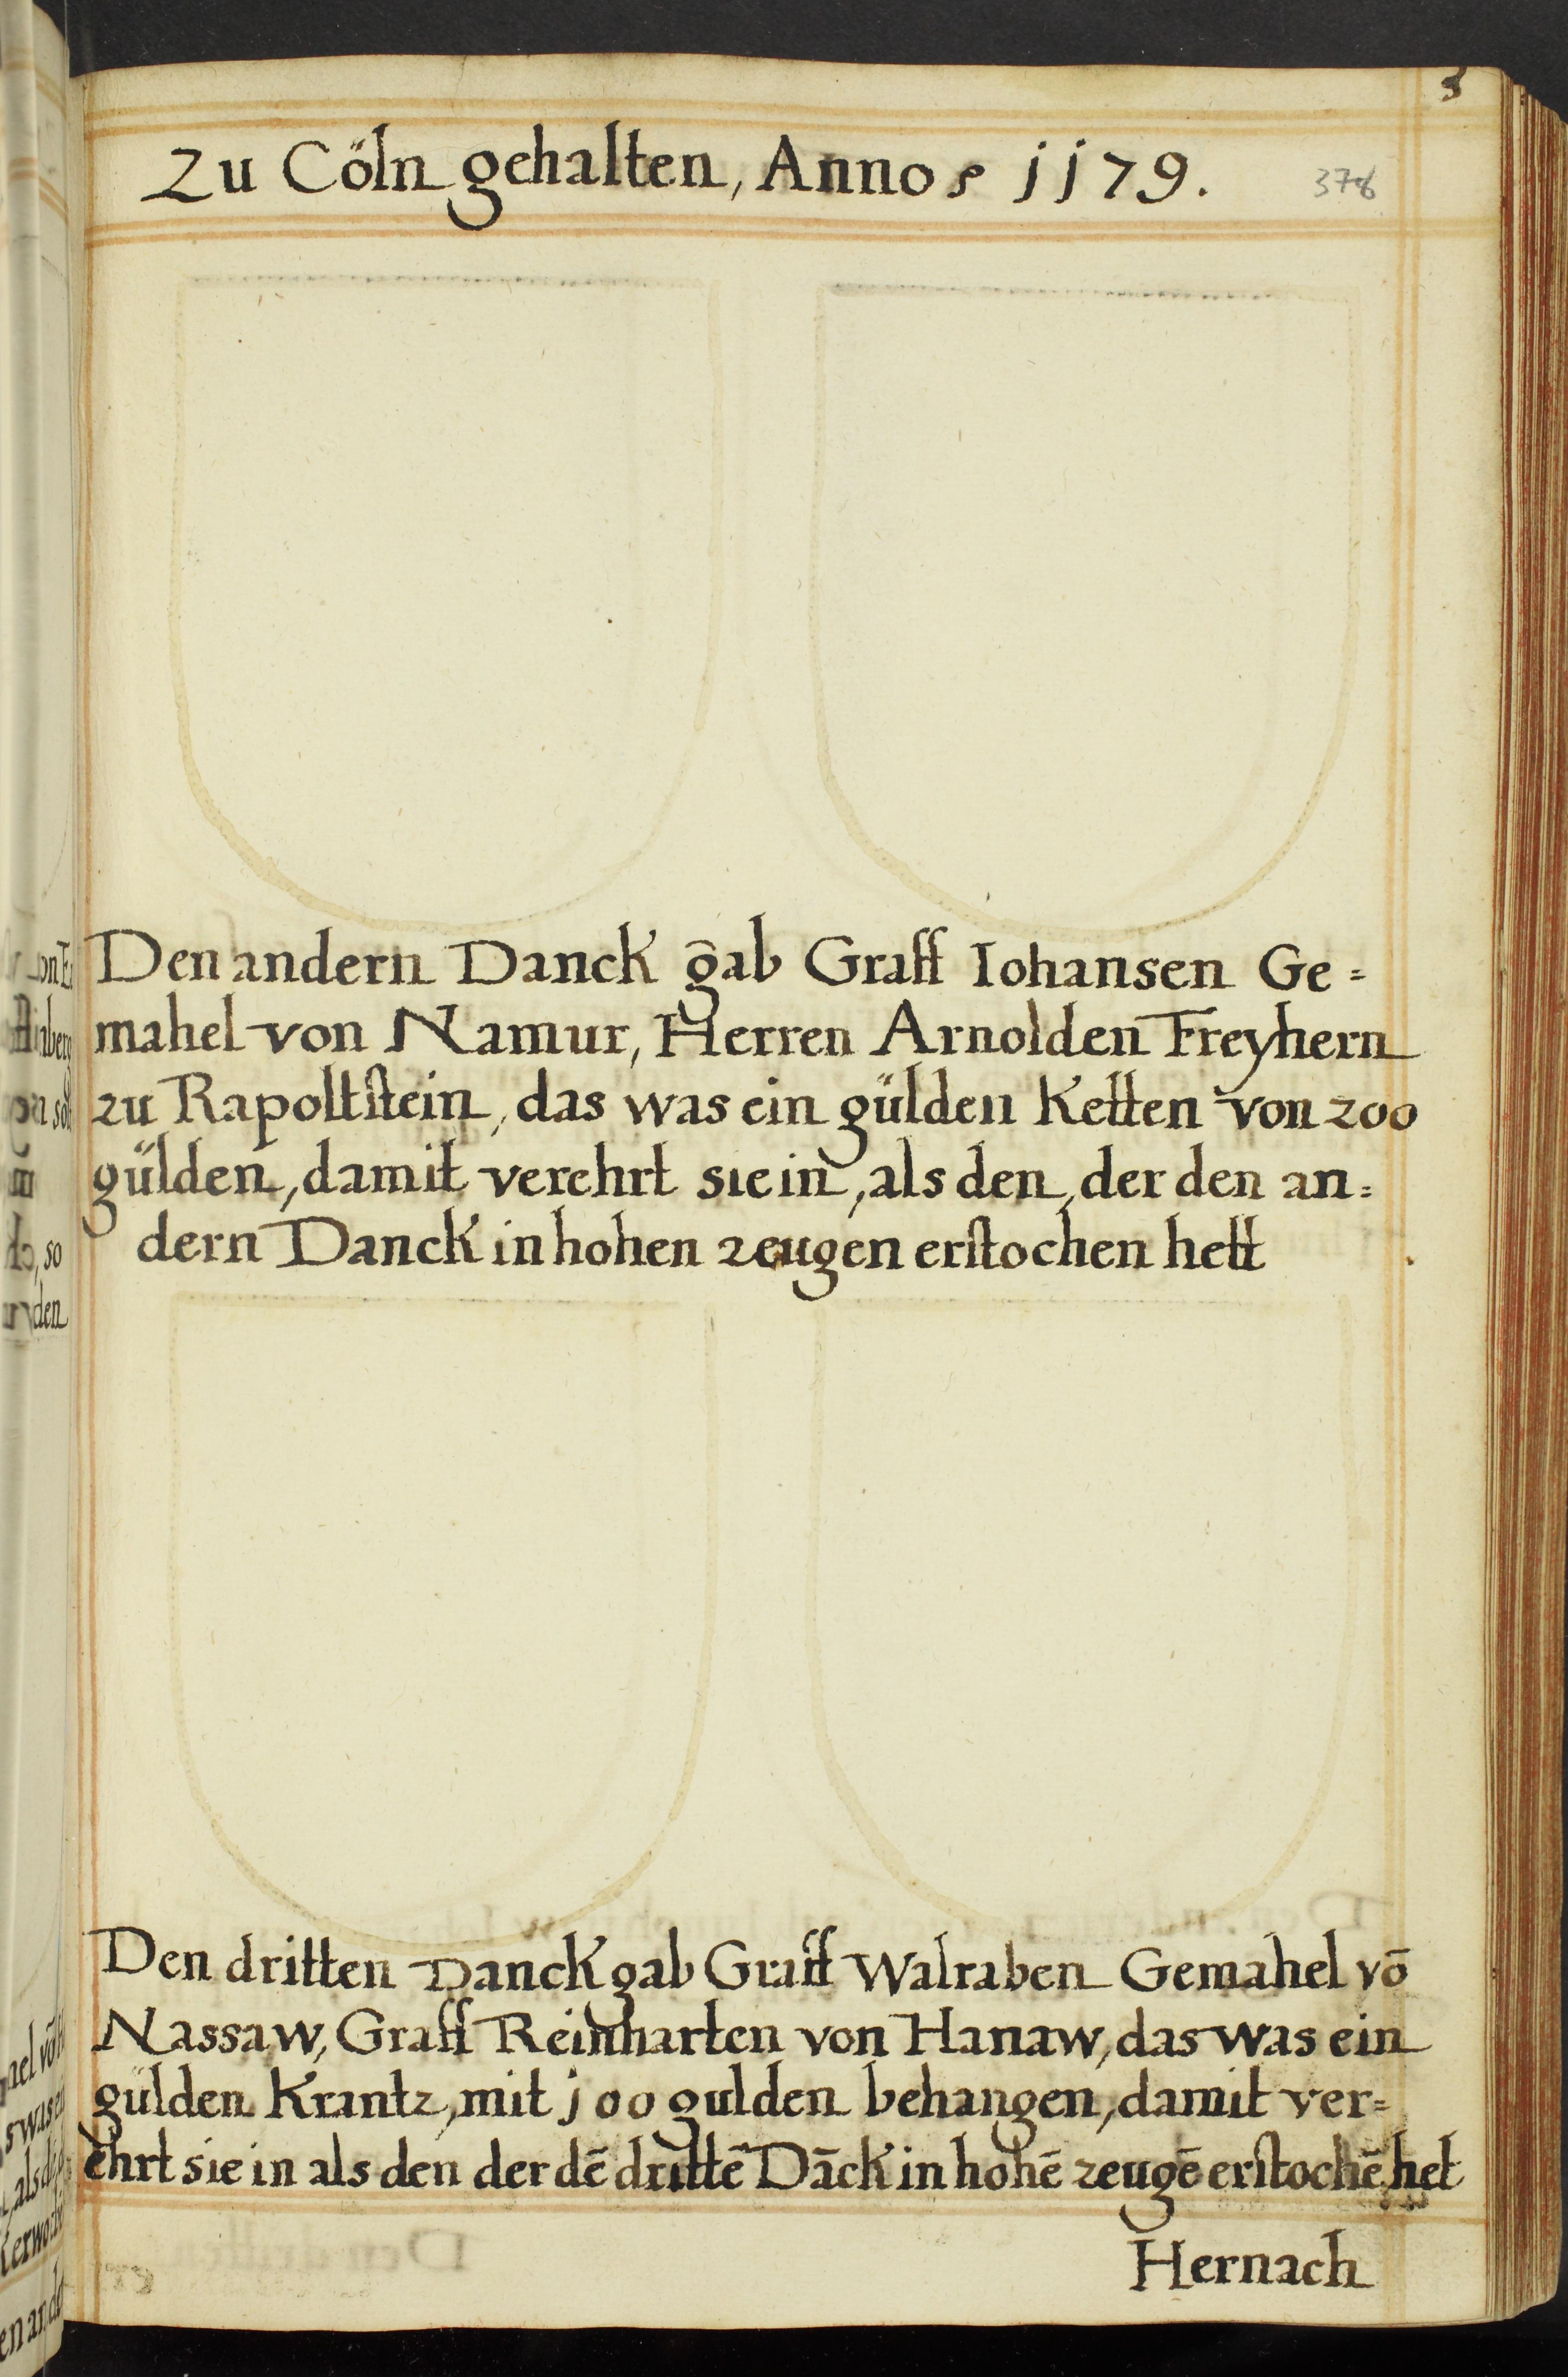 Zu Cöln gehalten, Anno 1179.
378
Den andern Danck gab Graff Iohansen Ge=
mahel von Namur, Herren Arnolden Freyhern
zu Rapoltstein, das was ein gülden Ketten von 200
gülden, damit verehrt sie in, als den, der den an=
dern Danck in hohen zeugen erstochen hett
Den dritten Danck gab Graff Walraben Gemahel vō
Nassaw, Graff Reinharten von Hanaw, das was ein
gülden Krantz, mit j00 gulden behangen, damit ver=
ehrt sie in als den der dē drittē Dāck in hohē zeugē erstochē het
Hernach